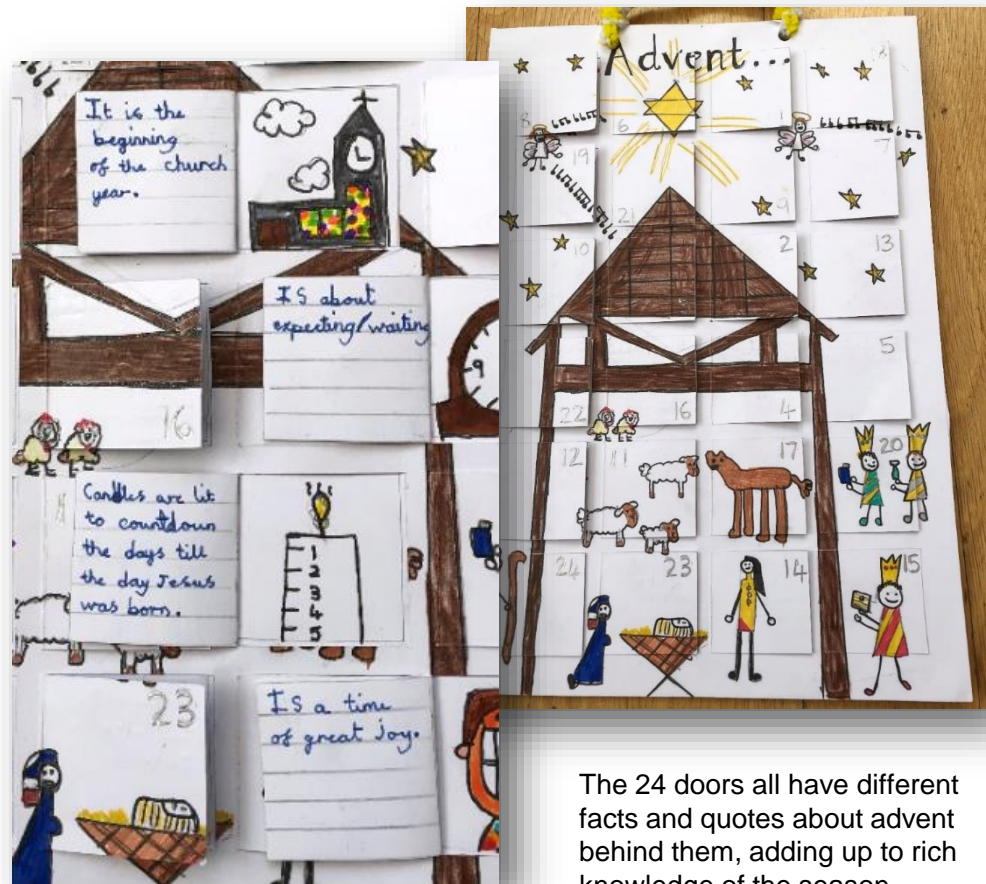 It is the
beginning
of the church
year.
IS about
expecting/waiting
9
16
Candles are lit
to countdown
the days till
the day Jesus
was born.
1
2
3
4
5
23
IS a time
of great Joy.
Advent...
8
6
1
3
19
7
21
9
10
2
13
5
22
16
4
12
11
17
20
24
23
14
15
The 24 doors all have different
facts and quotes about advent
behind them, adding up to rich
knowledge of the season